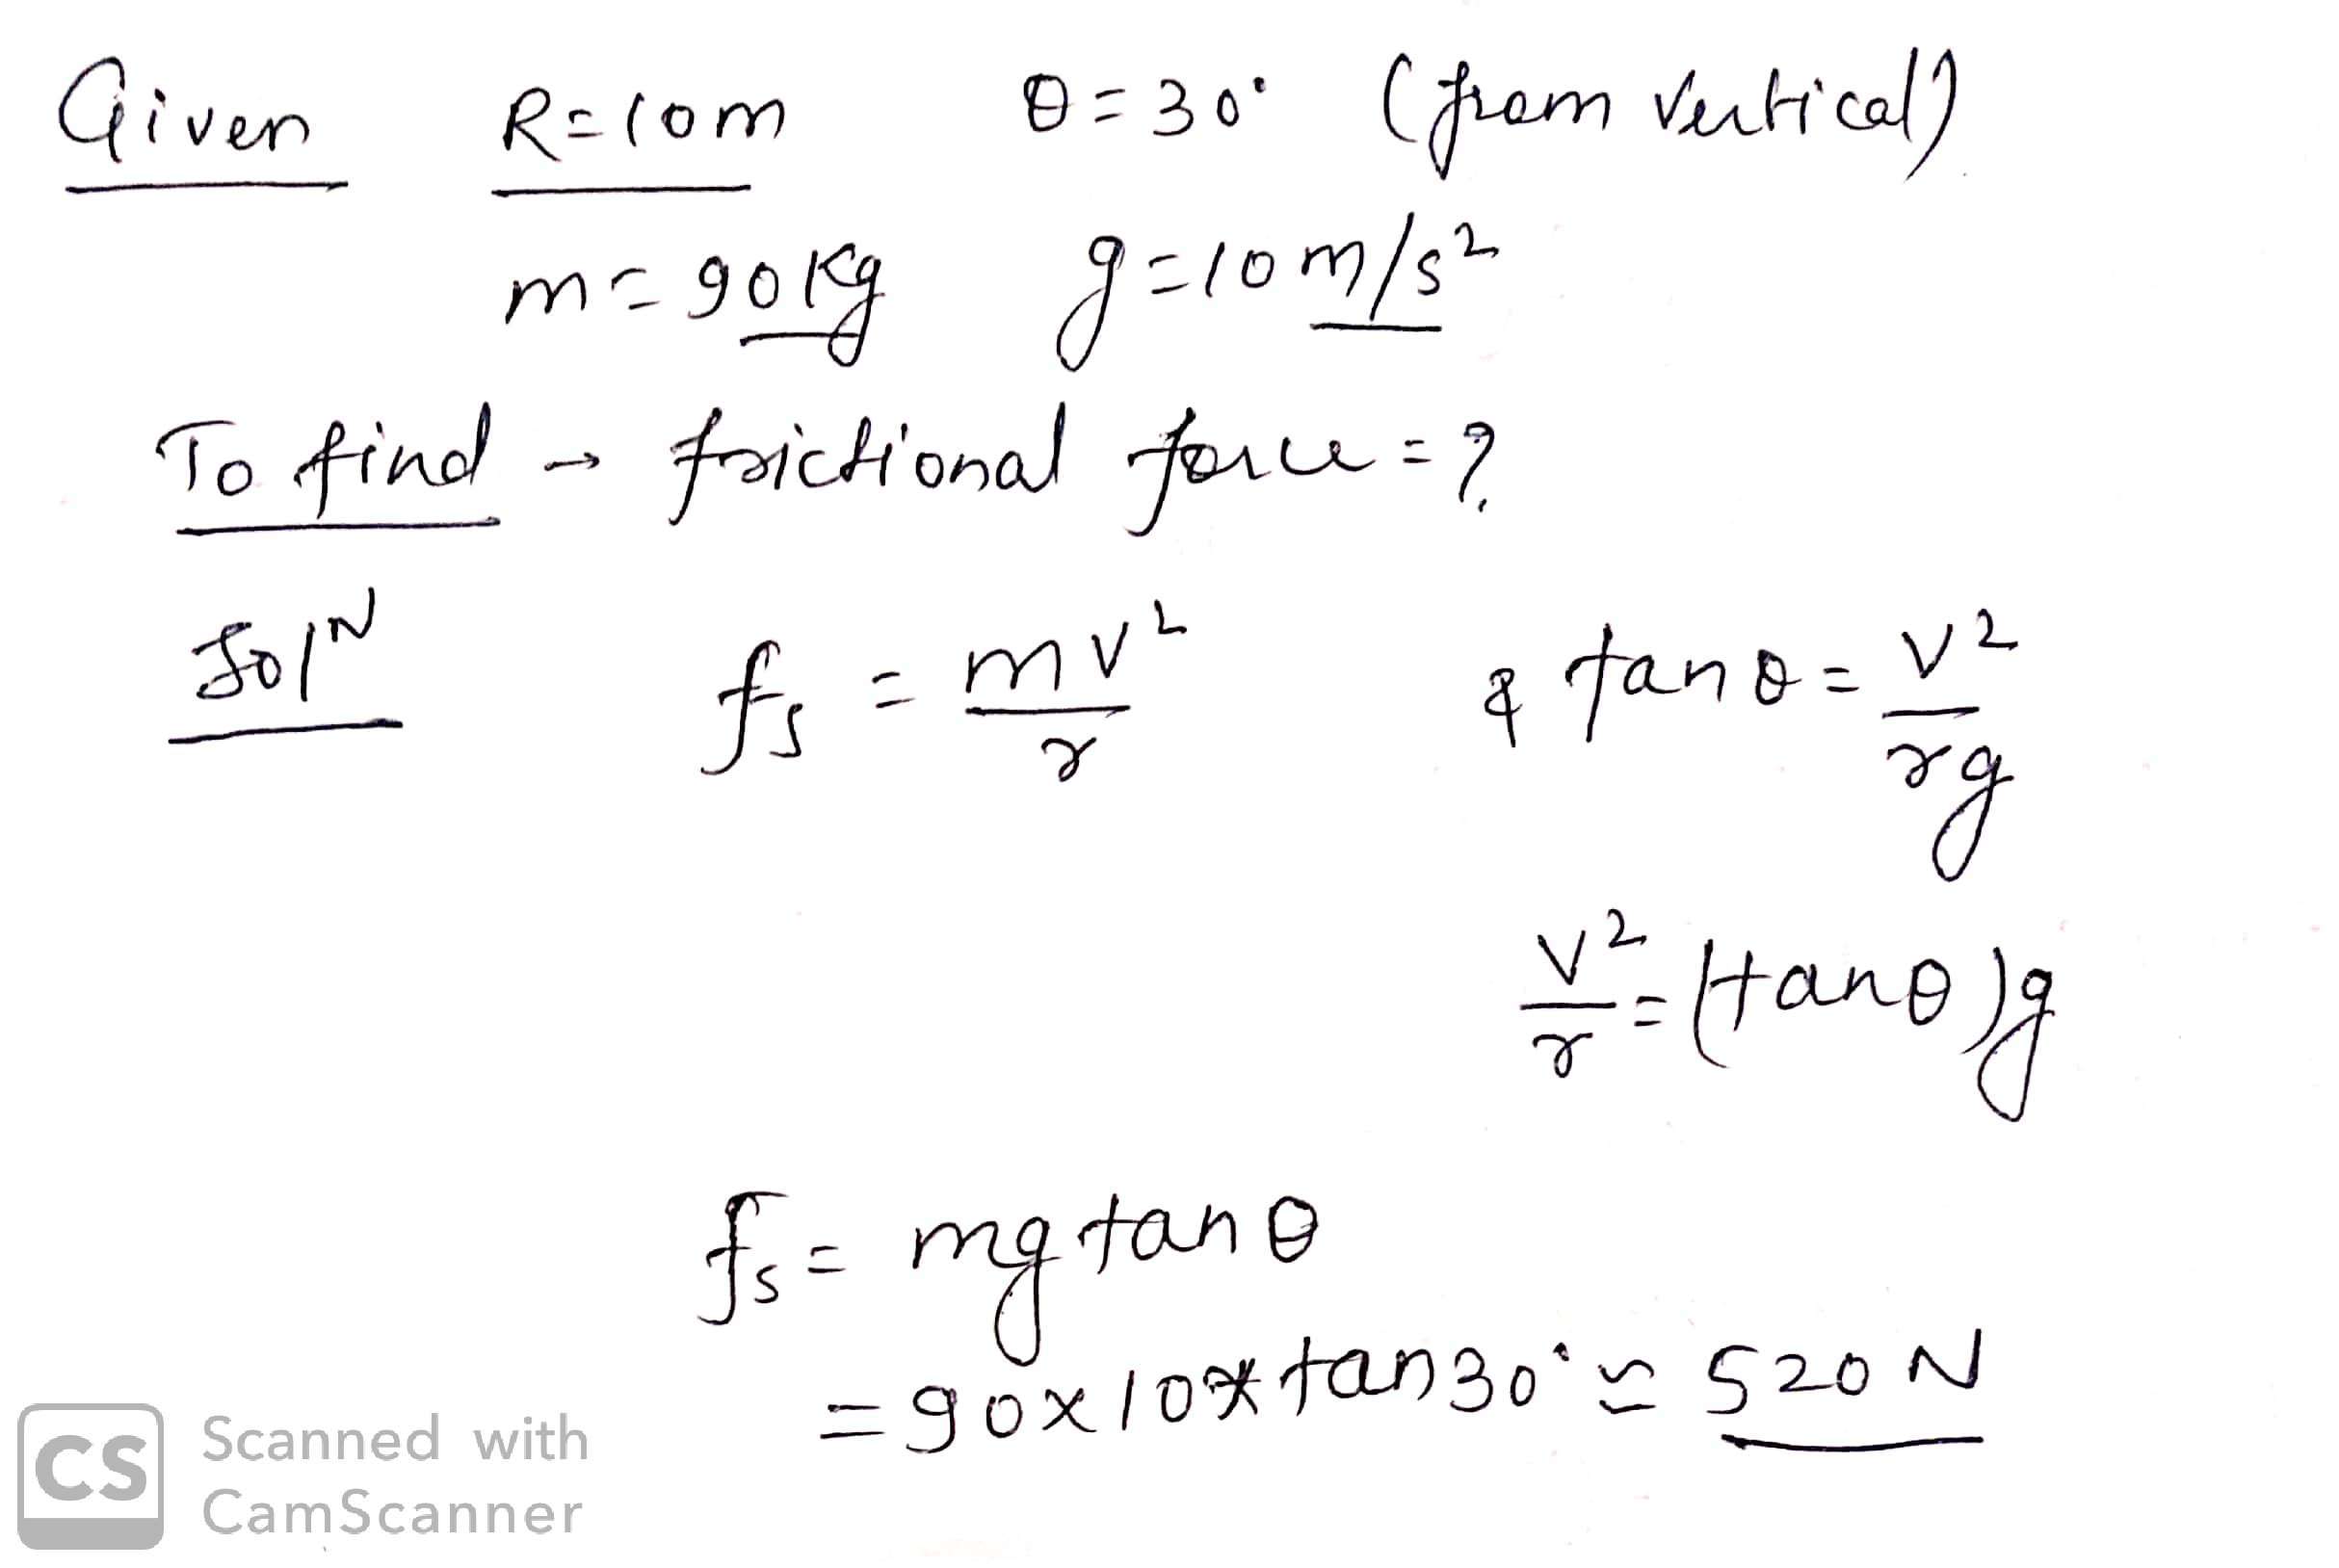 Given R=10m θ=30° (from Vertical)
m=90Kg g=10m/s²
To find → frictional force=?
Solᴺ fs = mv²/r & tanθ = v²/rg
v²/r = (tanθ)g
fs = mg tanθ
= 90×10×tan30° ≃ 520N
CS Scanned with
CamScanner